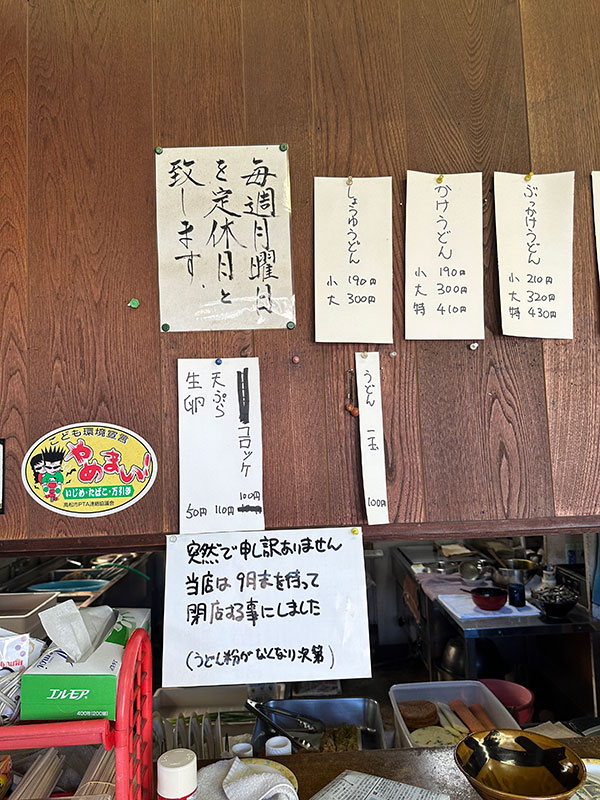 毎週月曜日
を定休日と
致します.
しょうゆうどん
小 190円
大 300円
かけうどん
小 190円
大 300円
特 410円
ぶっかけうどん
小 210円
大 320円
特 430円
コロッケ 100円
天ぷら 110円
生卵 50円
うどん 一玉 100円
こども環境宣言
やめまい!
いじめ・たばこ・万引き
高松市PTA連絡協議会
突然で申し訳ありません
当店は9月末を持って
閉店する事にしました
(うどん粉がなくなり次第)
エルモア
400枚(200組)